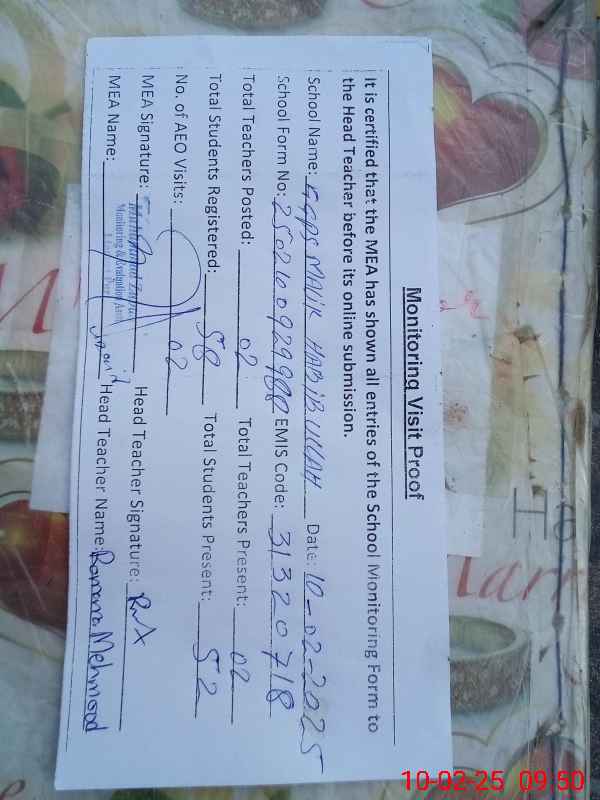 Monitoring Visit Proof
It is certified that the MEA has shown all entries of the School Monitoring Form to
the Head Teacher before its online submission.
School Name: GGPS MALIK HABIB ULLAH Date: 10-02-2025
School Form No: EMIS Code: 31320718
Total Teachers Posted: 02 Total Teachers Present: 02
Total Students Registered: 58 Total Students Present: 52
No. of AEO Visits: 02
MEA Signature: Head Teacher Signature:
Muhammad
Monitoring & Evaluation Assistant
MEA Name: Head Teacher Name: Mehmood
Ha
arr
10-02-25 09:50